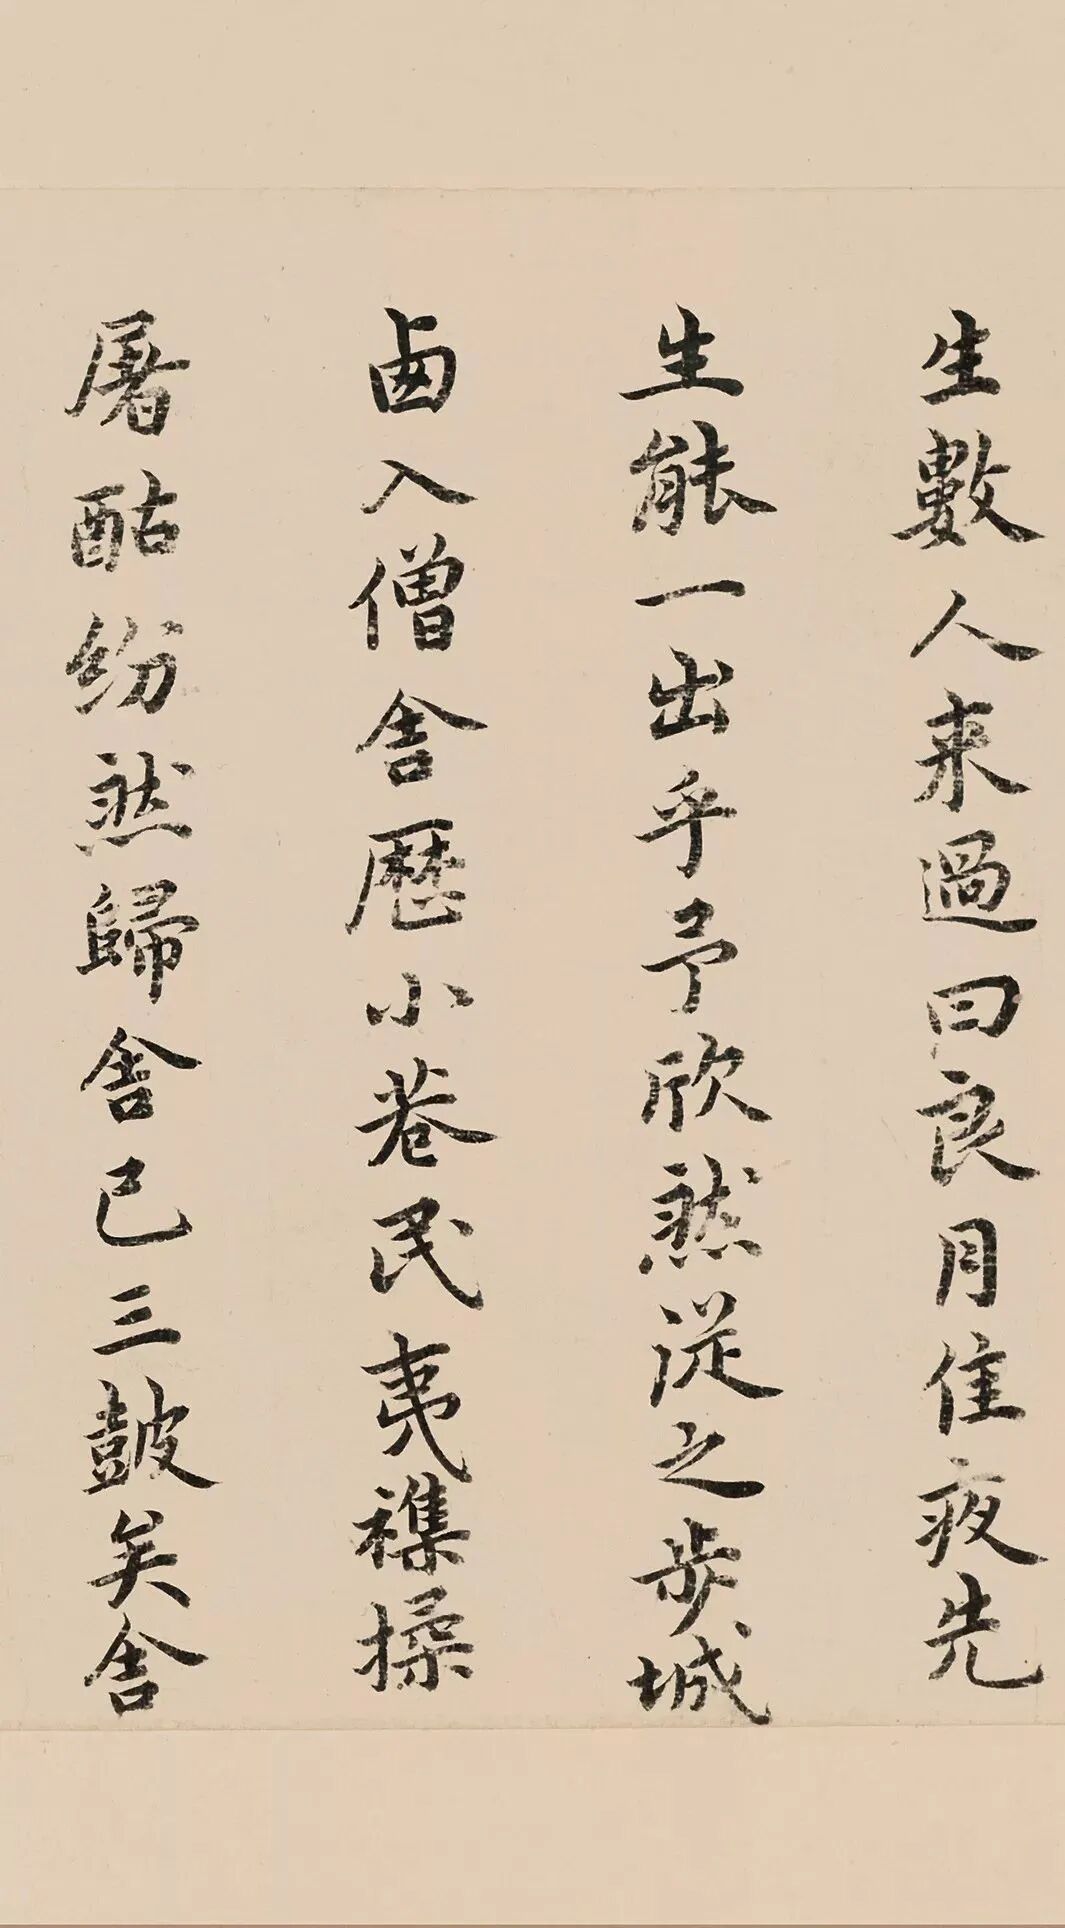 生數人来過曰良月佳夜先
生能一出乎予欣然従之步城
西入僧舍歷小巷民夷襍揉
屠酤紛然歸舍已三鼓矣舍